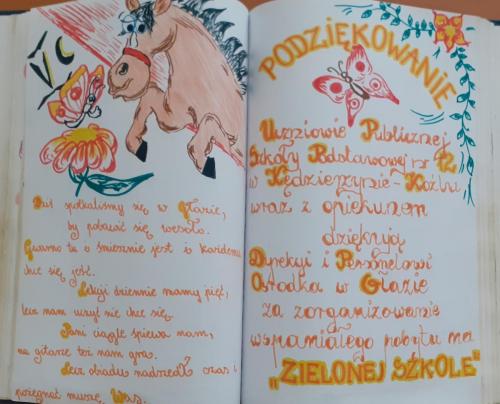 VC
Dziś spotkaliśmy się w Głazie,
by pobawić się wesoło.
Gwarno tu o śmiesznie jest i każdemu
chce się jeść.
Lekcji dziennie mamy pięć,
lecz nam uczyć nie chce się.
Pani ciągle śpiewa nam,
na gitarze też nam gra.
Lecz obiadu nadszedł czas i
pożegnać muszę Was.
PODZIĘKOWANIE
Uczniowie Publicznej
Szkoły Podstawowej nr 12
w Kędzierzynie-Koźlu
wraz z opiekunem
dziękują
Dyrekcji i Personelowi
Ośrodka w Głazie
za zorganizowanie
wspaniałego pobytu na
"ZIELONEJ SZKOLE"